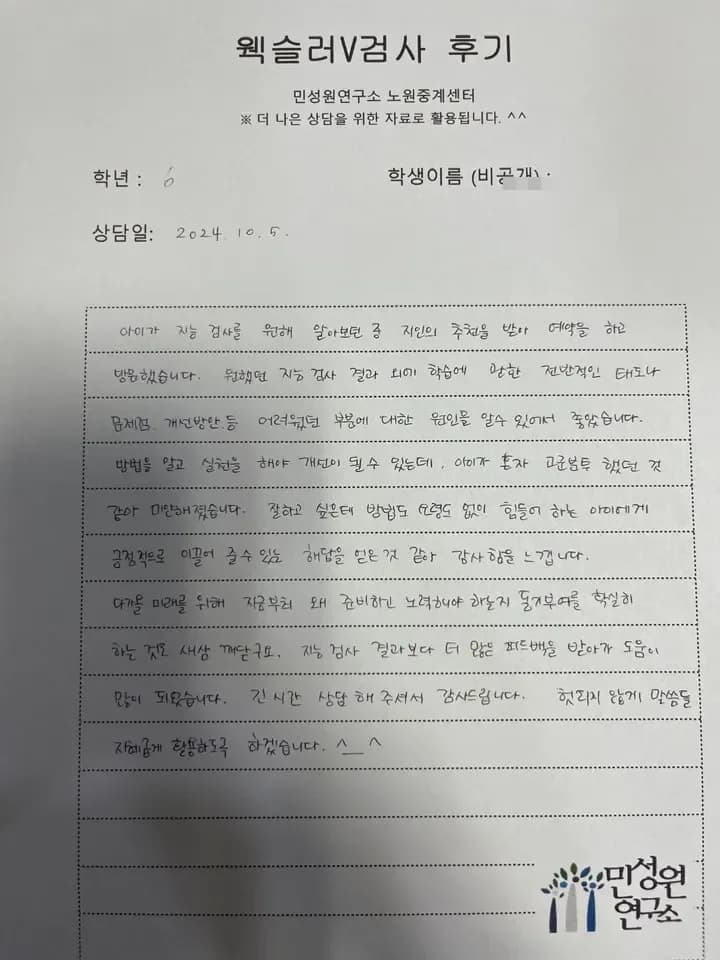 웩슬러V검사 후기
민성원연구소 노원중계센터
※ 더 나은 상담을 위한 자료로 활용됩니다. ^^
학년 : 6
학생이름 (비공개) :
상담일: 2024. 10. 5.
아이가 지능 검사를 원해 알아보던 중 지인의 추천을 받아 예약을 하고
방문했습니다. 원했던 지능 검사 결과 외에 학습에 관한 전반적인 태도나
문제점, 개선방안 등 어려웠던 부분에 대한 원인을 알수 있어서 좋았습니다.
방법을 알고 실천을 해야 개선이 될 수 있는데, 아이가 혼자 고군분투 했던 것
같아 미안해졌습니다. 잘하고 싶은데 방법도 요령도 없이 힘들어 하는 아이에게
긍정적으로 이끌어 줄 수 있는 해답을 얻은 것 같아 감사함을 느낍니다.
다가올 미래를 위해 지금부터 왜 준비하고 노력해야 하는지 동기부여를 확실히
하는 것도 새삼 깨닫구요. 지능 검사 결과보다 더 많은 피드백을 받아가 도움이
많이 되었습니다. 긴 시간 상담 해 주셔서 감사드립니다. 헛되지 않게 말씀들
지혜롭게 활용하도록 하겠습니다. ^__^
민성원
연구소